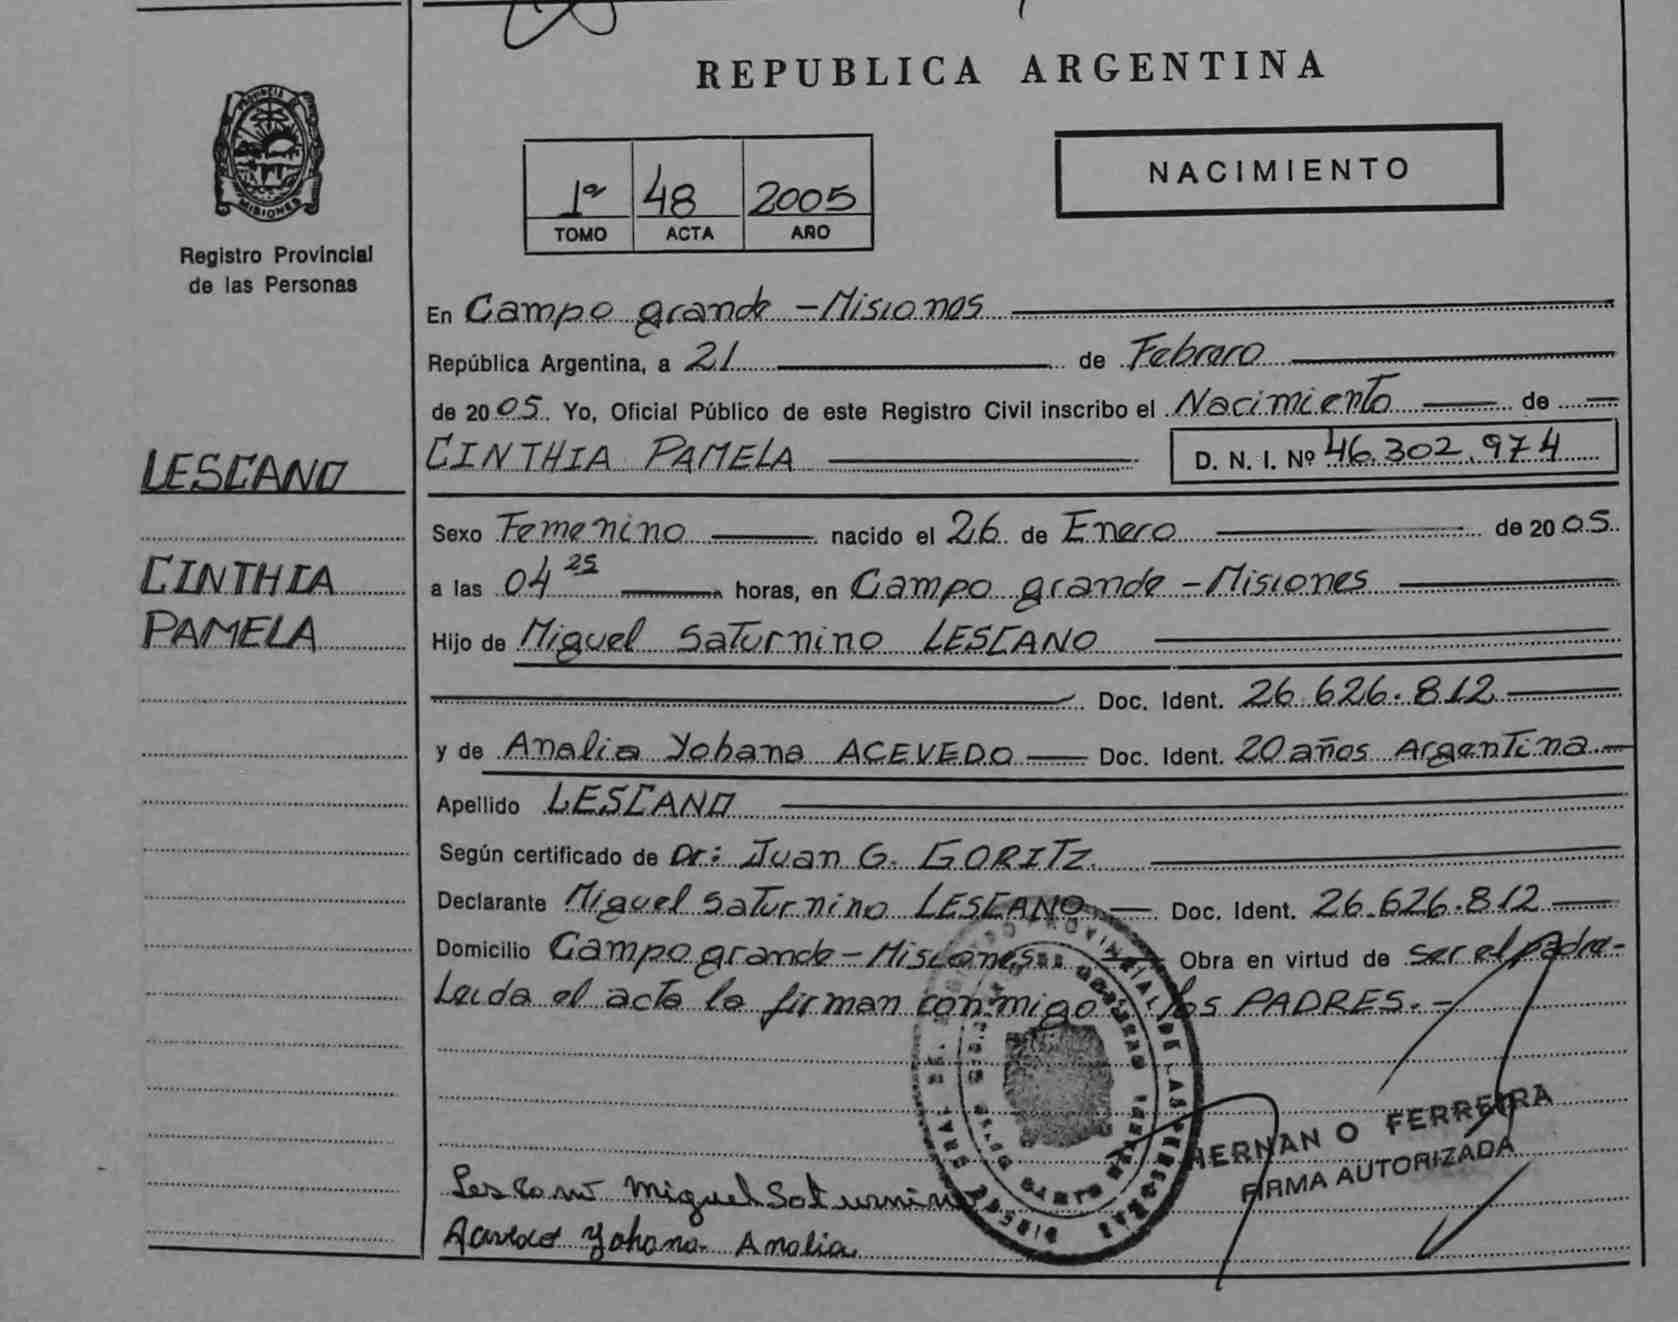 REPUBLICA ARGENTINA
PROVINCIA DE
MISIONES
Registro Provincial
de las Personas
1º 48 2005
TOMO ACTA AÑO
NACIMIENTO
En Campo grande - Misiones
República Argentina, a 21 de Febrero
de 2005. Yo, Oficial Público de este Registro Civil inscribo el Nacimiento de
CINTHIA PAMELA D. N. I. Nº 46.302.974
LESCANO
CINTHIA
PAMELA
Sexo Femenino nacido el 26 de Enero de 2005.
a las 04 25 horas, en Campo grande - Misiones
Hijo de Miguel Saturnino LESCANO
Doc. Ident. 26.626.812
y de Analia Yohana ACEVEDO Doc. Ident. 20 años Argentina
Apellido LESCANO
Según certificado de Dr: Juan G. GORITZ
Declarante Miguel Saturnino LESCANO Doc. Ident. 26.626.812
Domicilio Campo grande - Misiones Obra en virtud de ser el padre-
Leida el acta la firman conmigo los PADRES.-
HERNAN O FERREIRA
FIRMA AUTORIZADA
Lescano Miguel Saturnino
Acevedo Yohana Analia